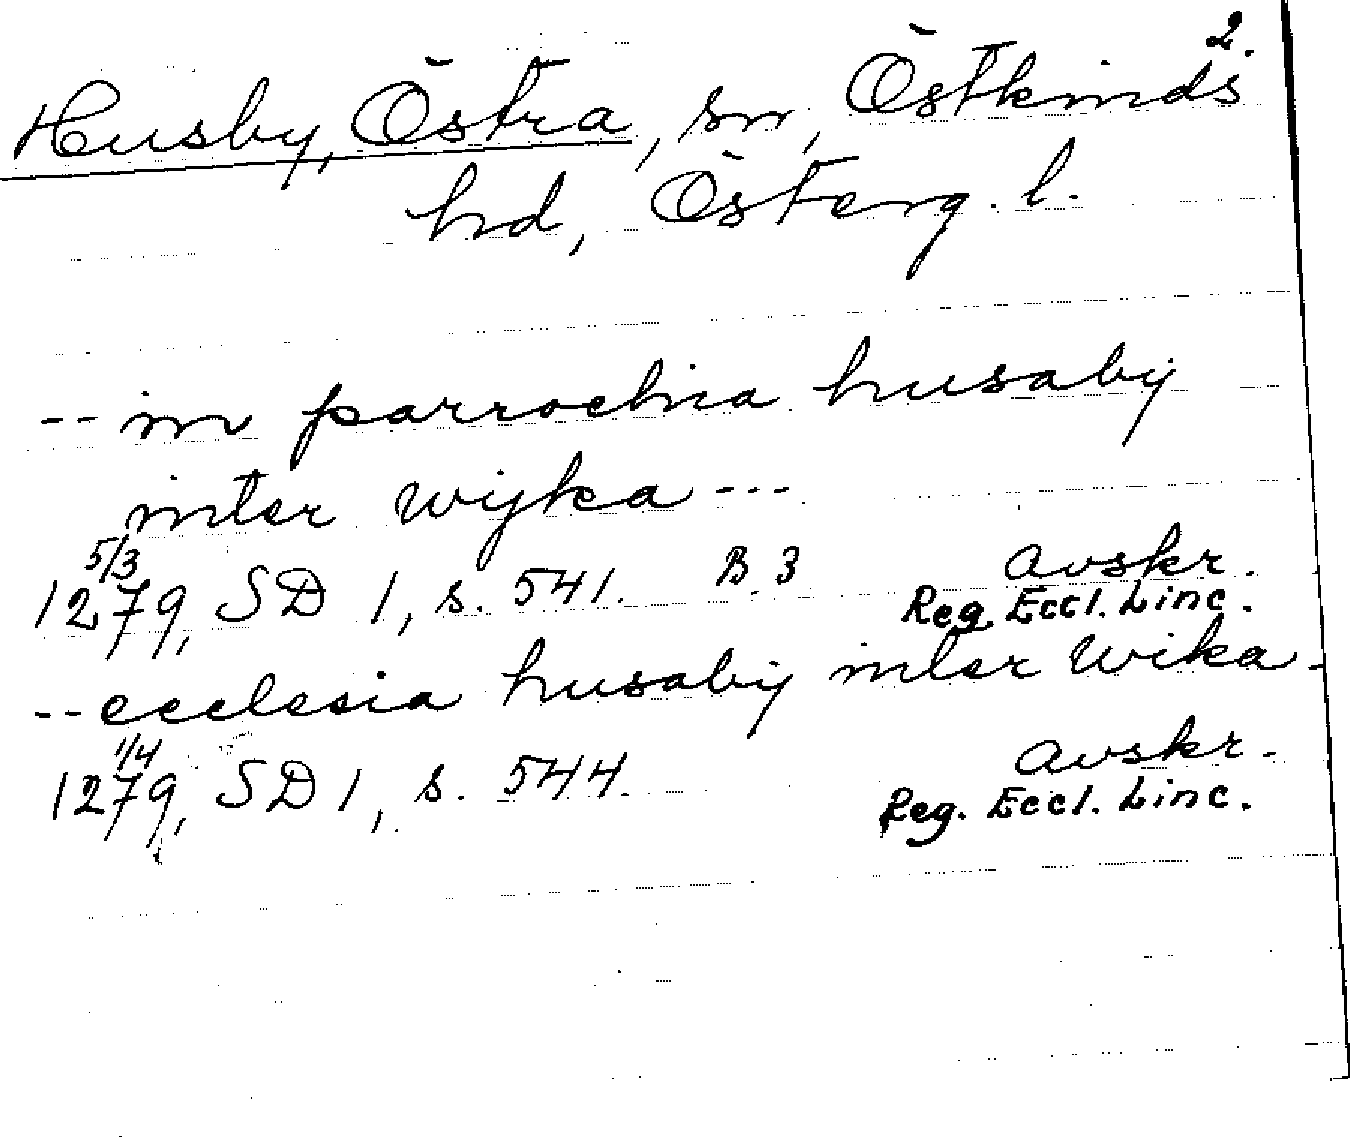 2.
Husby, Östra, sn, Östkinds
hd, Österg. l.
-- in parrochia husaby
inter wijka ---
5/3
1279, SD 1, s. 541. B. 3 avskr.
Reg. Eccl. Linc.
-- ecclesia husaby inter wika -
1/4
1279, SD 1, s. 544. avskr.
Reg. Eccl. Linc.